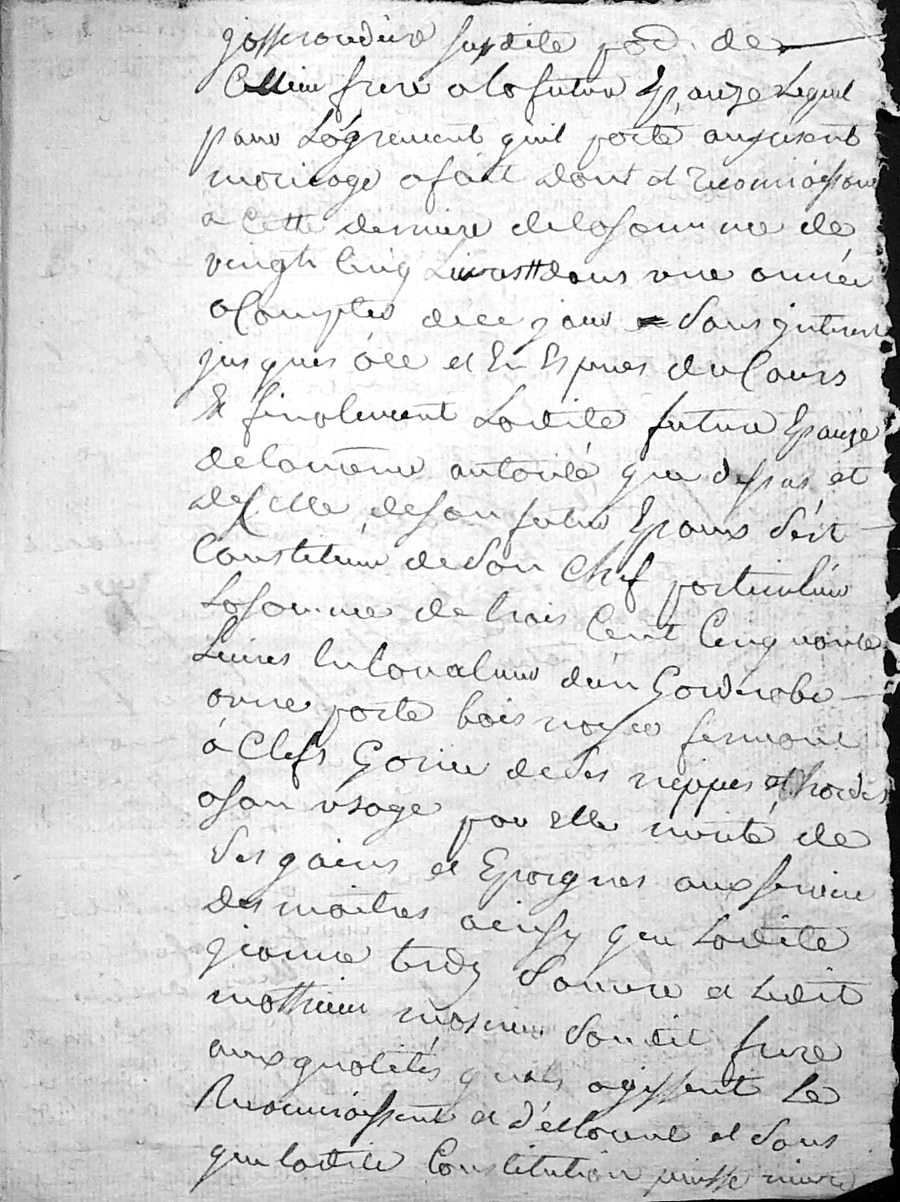 josserandiere susdite par. de
Cellieu frere a la future Epouze Lequel
pour Lagrement quil porte au present
mariage a fait don et reconnoissance
a Cette derniere de la somme de
vingt Cinq Livres dans une année
a Compter de ce jour Sans jnterest
jusques a ce et En Especes du Cours
Et finalement Ladite future Epouze
de la même autorité que dessus et
de Celle de son futur Epoux S'est
Constituée de Son Chef particulier
La somme de trois Cent Cinquante
Livres En la valeur d'un Garderobe
a une porte bois noyer fermant
à Clefs Garnie de Ses nippes et hardes
a son usage par elle mérité de
Ses gains et Epargnes aux service
des maitres ainsy que Ladite
jeanne tardy Sa mere et Ledit
matthieu Sondit frere
aux qualités quils agissent Le
Reconnoissent et déclarent et Sans
que ladite Constitution puisse nuire